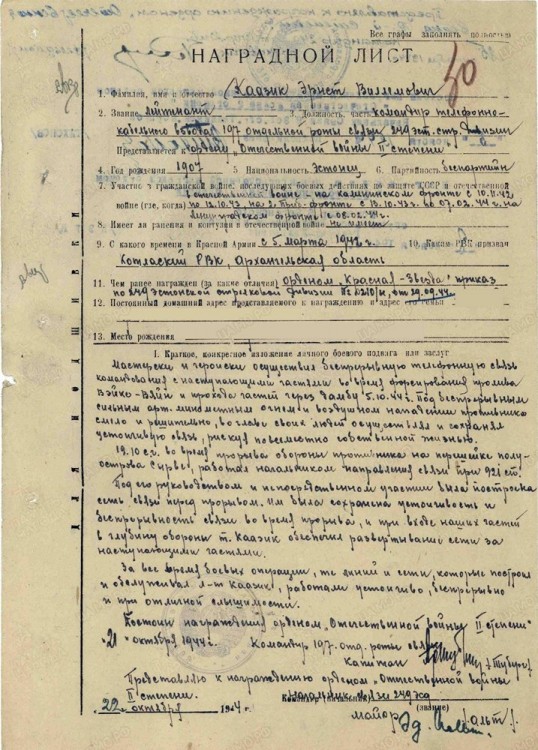 Все графы заполнять полностью
НАГРАДНОЙ ЛИСТ
30
1. Фамилия, имя и отчество Каазик Эрнст Виллемович
2. Звание лейтенант 3. Должность, часть командир телефонно-
кабельного взвода 197 отдельной роты связи 249 эст. стр. дивизии
Представляется к ордену „Отечественной войны II степени"
4. Год рождения 1907 5. Национальность Эстонец 6. Партийность беспартийн
7. Участие в гражданской войне, последующих боевых действиях по защите СССР и отечественной
войне (где, когда) в отечественной войне - на калининском фронте с 10.11.42
по 12.10.43, на 2. Приб. фронте с 13.10.43г. по 07.02.44г. на
Ленинградском фронте с 08.02.44г.
8. Имеет ли ранения и контузии в отечественной войне не имеет
9. С какого времени в Красной Армии с 5. марта 1942г. 10. Каким РВК призван
Котлаский РВК, Архангельская область
11. Чем ранее награжден (за какие отличия) орденом „Красная-Звезда" приказ
по 249 эстонской стрелковой дивизии от 29.09.44.
12. Постоянный домашний адрес представляемого к награждению и адрес его семьи
13. Место рождения
I. Краткое, конкретное изложение личного боевого подвига или заслуг
Мастерски и геройски осуществил беспрерывную телефонную связь
командования с наступающими частями во время форсирования пролива
Вэйко-Вяйн и прохода частей через дамбу 5.10.44г. Под беспрерывным
сильным арт. минометным огнем и воздушном нападении противника
смело и решительно, во главе своих людей осуществлял и сохранял
устойчивую связь, рискуя повсеместно собственной жизнью.
19.10 с.г. во время прорыва обороны противника на перешейке полу-
острова Сырве, работал начальником направления связи при 921 сп.
Под его руководством и непосредственном участии была построена
сеть связи перед прорывом. Им была сохранена устойчивость и
беспрерывность связи во время прорыва, и при входе наших частей
в глубину обороны т. Каазик обеспечил развертывание сети за
наступающими частями.
За все время боевых операции, те линий и сети, которые построил
и обслуживал л-т Каазик, работали устойчиво, беспрерывно
и при отличной слышимости.
Достоин награждения орденом „Отечественной войны II степени"
"21" октября 1944г. Командир 197. отд. роты связи
Капитан
Представляю к награждению орденом „Отечественной войны
II степени.
Начальник связи 249
22 октября 1944 г.
майор
Для подшивки